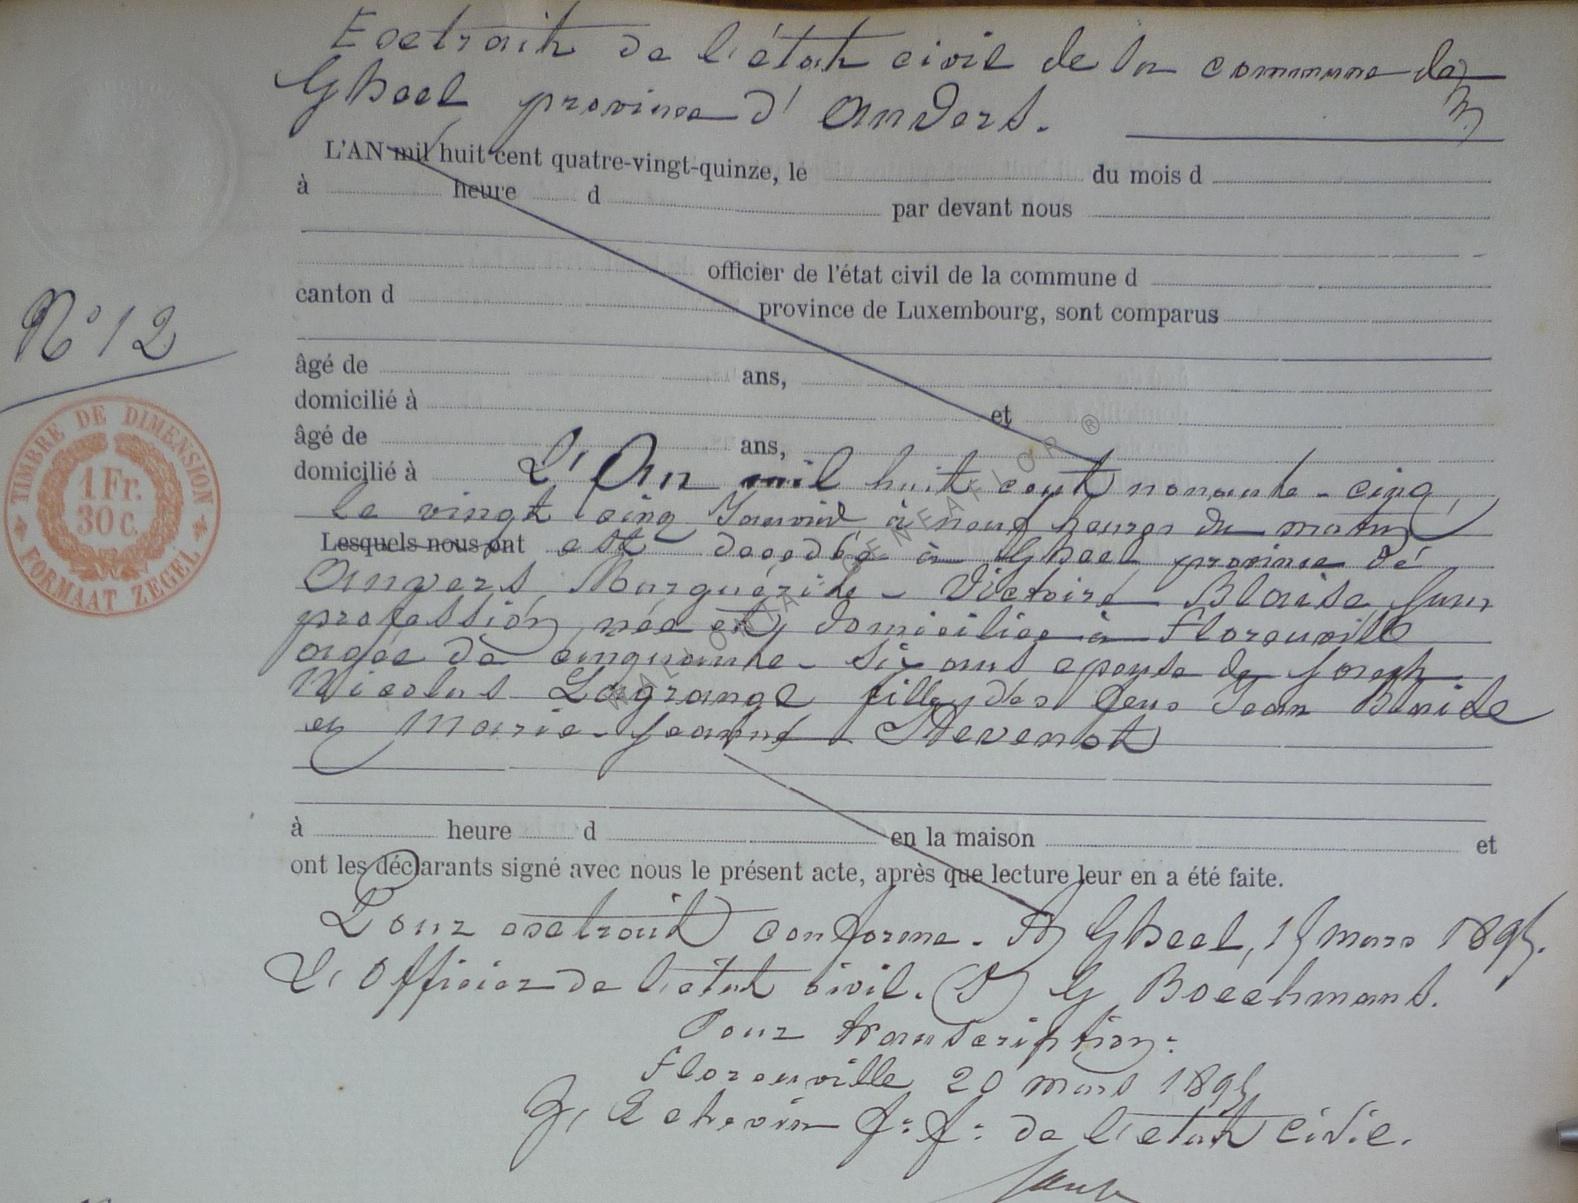 Extrait de l'état civil de la commune de
Gheel province d'Anvers.
L'AN mil huit cent quatre-vingt-quinze, le du mois d
à heure d par devant nous
officier de l'état civil de la commune d
canton d province de Luxembourg, sont comparus
N° 12
âgé de ans,
domicilié à et
âgé de ans,
domicilié à L'An mil huit cent nonante-cinq
le vingt cinq Janvier à neuf heures du matin
Lesquels nous ont est décédée à Gheel province de
Anvers Marguerite-Victoire Blaise sans
profession née et domiciliée à Florenville
agée de cinquante-six ans epouse de Joseph
Nicolas Lagrange fille des feus Jean
et Marie-Jeanne Stevenot
à heure d en la maison et
ont les déclarants signé avec nous le présent acte, après que lecture leur en a été faite.
Pour extrait conforme. A Gheel, 15 mars 1895.
L'Officier de l'état civil. (S) G
Pour transcription:
Florenville 20 mars 1895
L'Echevin f. f. de l'état civil.
TIMBRE DE DIMENSION
1 Fr.
30 c.
FORMAAT ZEGEL